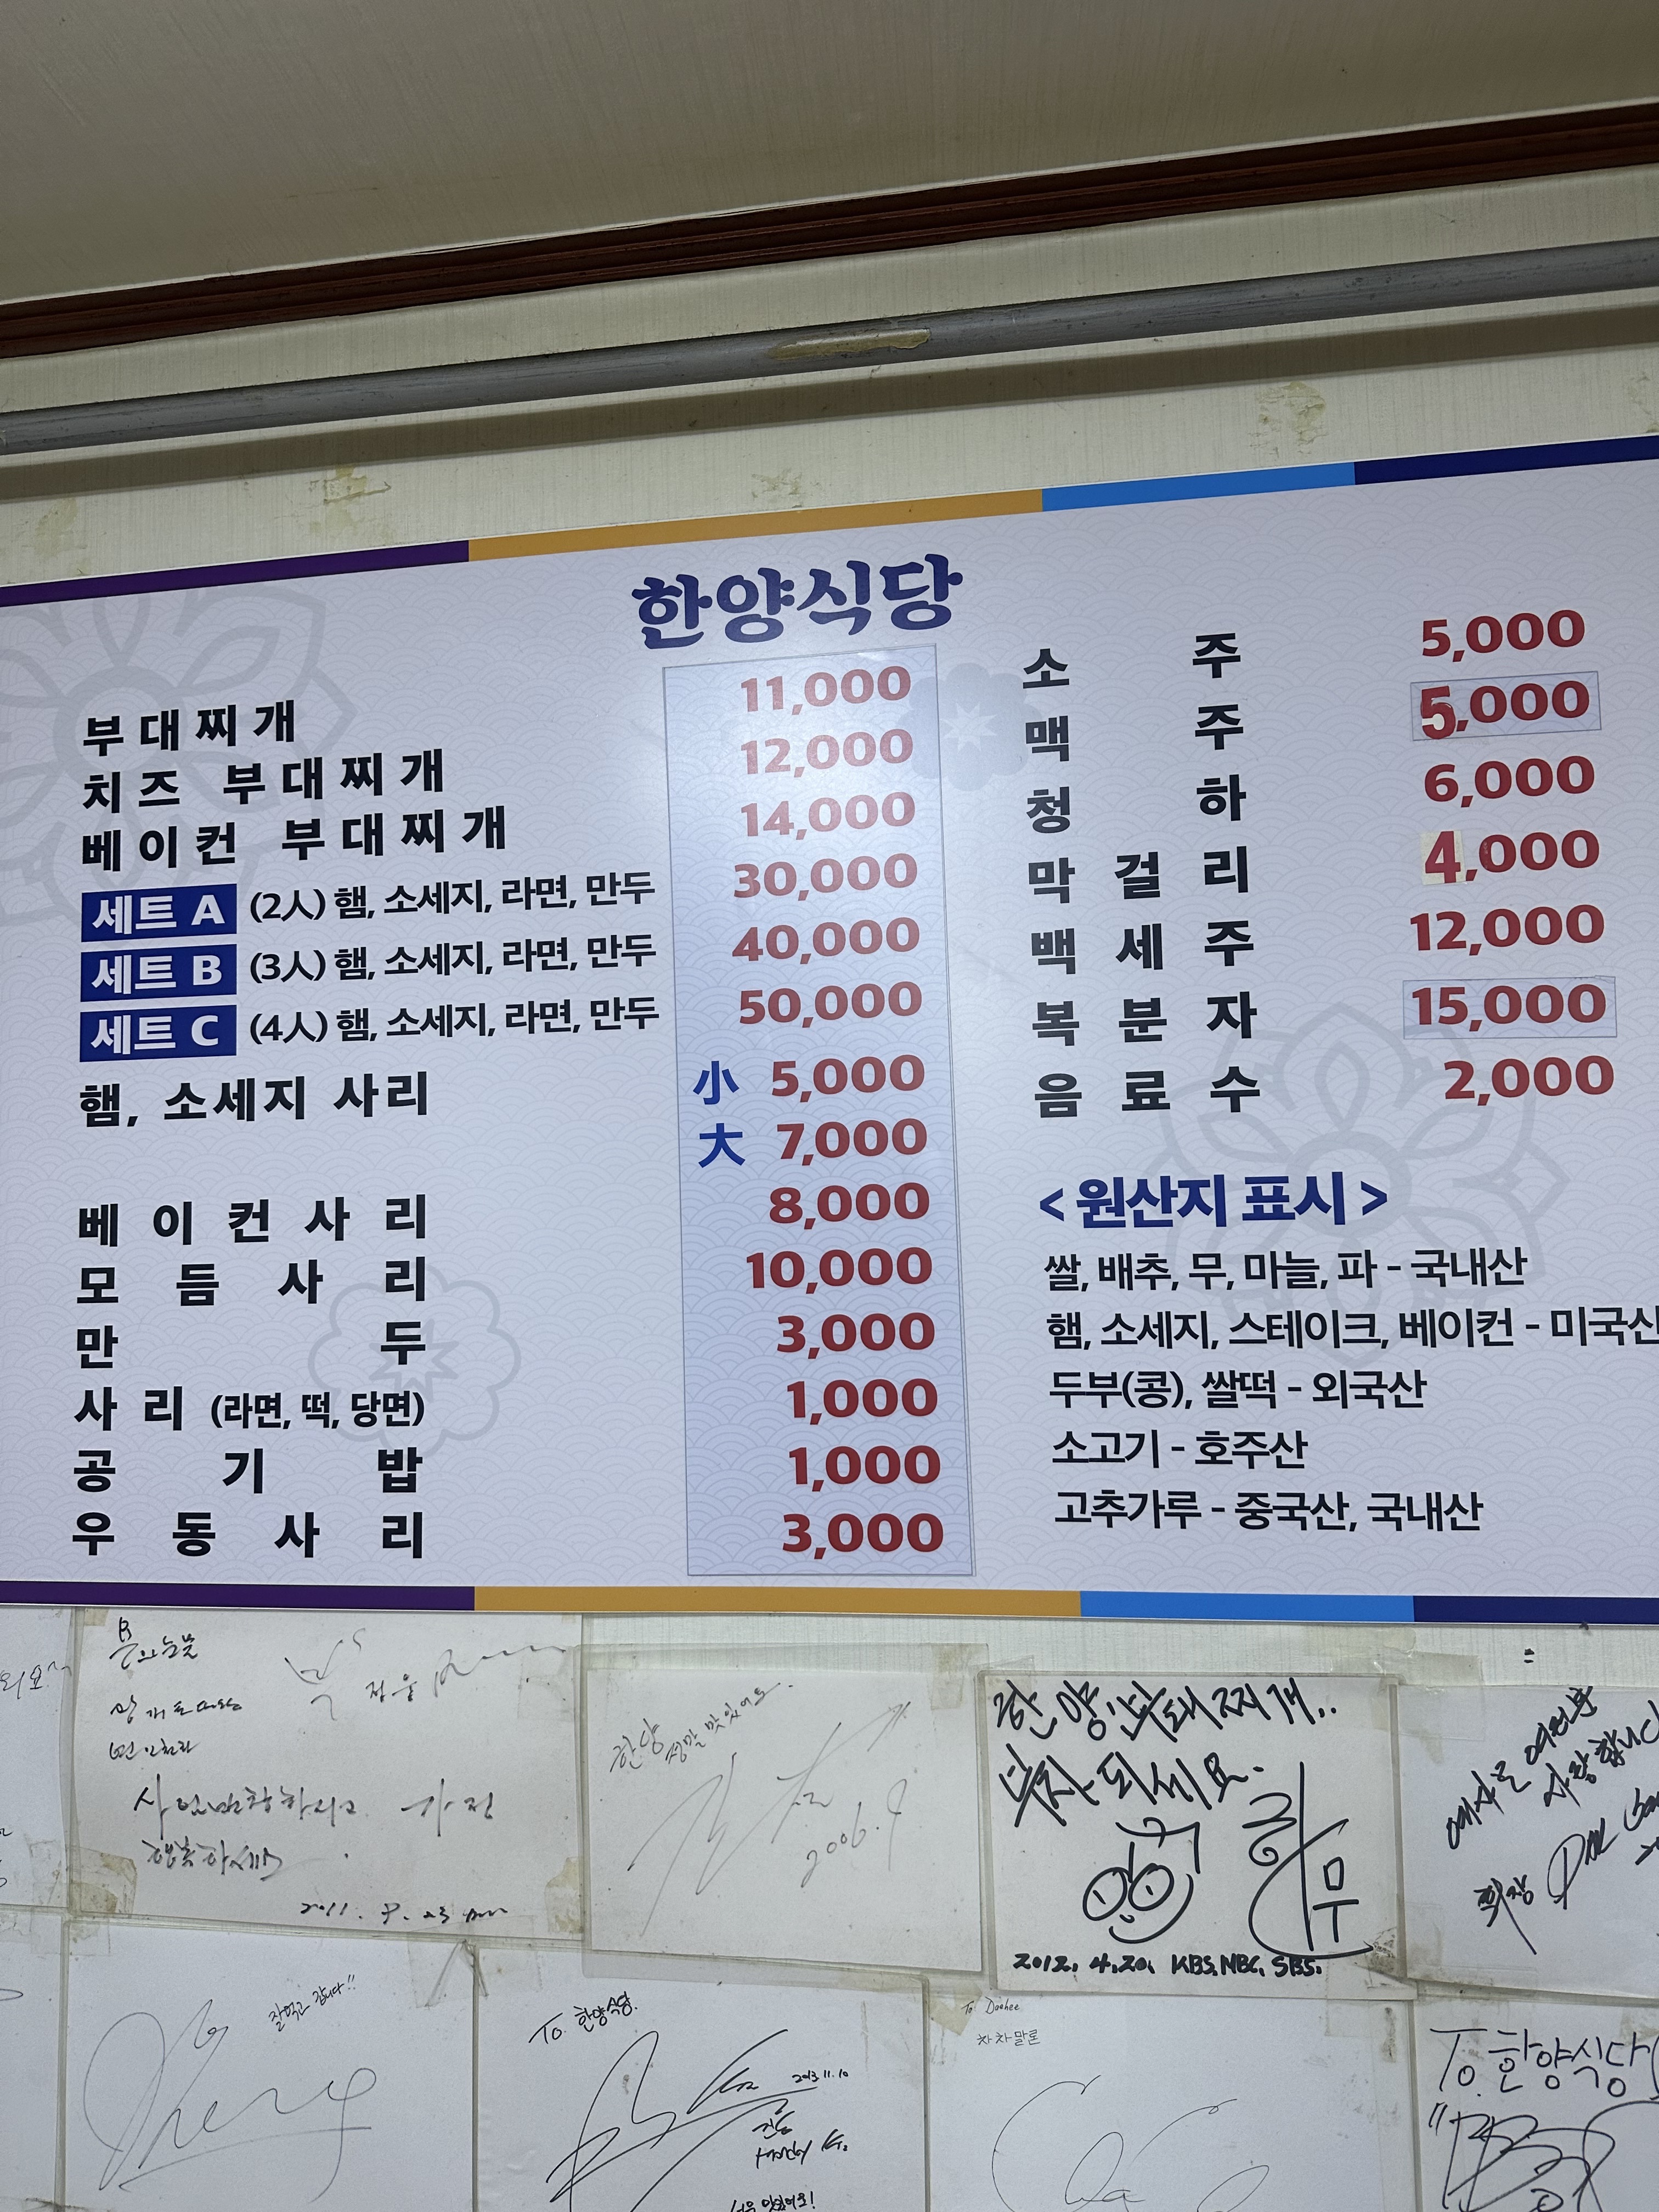 한양식당
부대찌개 11,000
치즈 부대찌개 12,000
베이컨 부대찌개 14,000
세트 A (2人) 햄, 소세지, 라면, 만두 30,000
세트 B (3人) 햄, 소세지, 라면, 만두 40,000
세트 C (4人) 햄, 소세지, 라면, 만두 50,000
햄, 소세지 사리 小 5,000
大 7,000
베이컨사리 8,000
모듬사리 10,000
만두 3,000
사리 (라면, 떡, 당면) 1,000
공기밥 1,000
우동사리 3,000
소주 5,000
맥주 5,000
청하 6,000
막걸리 4,000
백세주 12,000
복분자 15,000
음료수 2,000
< 원산지 표시 >
쌀, 배추, 무, 마늘, 파 - 국내산
햄, 소세지, 스테이크, 베이컨 - 미국산
두부(콩), 쌀떡 - 외국산
소고기 - 호주산
고추가루 - 중국산, 국내산
한양 정말 맛있어요.
2006.9
한양부대찌개..
부자되세요.
2012. 4.20. KBS.MBC. SBS.
잘먹고 갑니다!!
To. 한양식당.
2013.11.10
To. Daehee
To. 한양식당